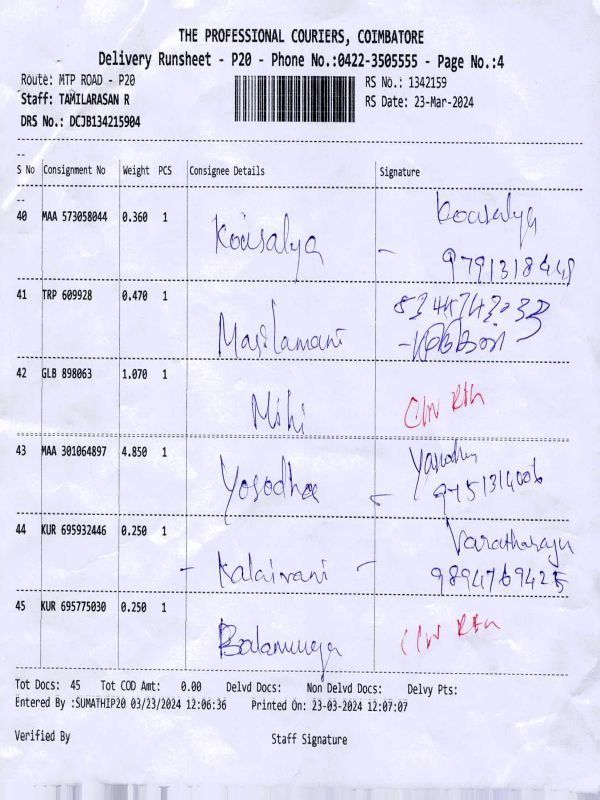 THE PROFESSIONAL COURIERS, COIMBATORE
Delivery Runsheet - P20 - Phone No.:0422-3505555 - Page No.:4
Route: MTP ROAD - P20 RS No.: 1342159
Staff: TAMILARASAN R RS Date: 23-Mar-2024
DRS No.: DCJB134215904
--
S No Consignment No Weight PCS Consignee Details Signature
--
40 MAA 573058044 0.360 1 Kousalya - Kousalya
9791318448
41 TRP 609928 0.470 1 Masilamani
42 GLB 898063 1.070 1 Mihi
43 MAA 301064897 4.850 1 Yosodha - Yasodha
9751314006
44 KUR 695932446 0.250 1 - Kalaivani - Varatharaju
9894769425
45 KUR 695775030 0.250 1 Balamuruga
Tot Docs: 45 Tot COD Amt: 0.00 Delvd Docs: Non Delvd Docs: Delvy Pts:
Entered By :SUMATHIP20 03/23/2024 12:06:36 Printed On: 23-03-2024 12:07:07
Verified By Staff Signature